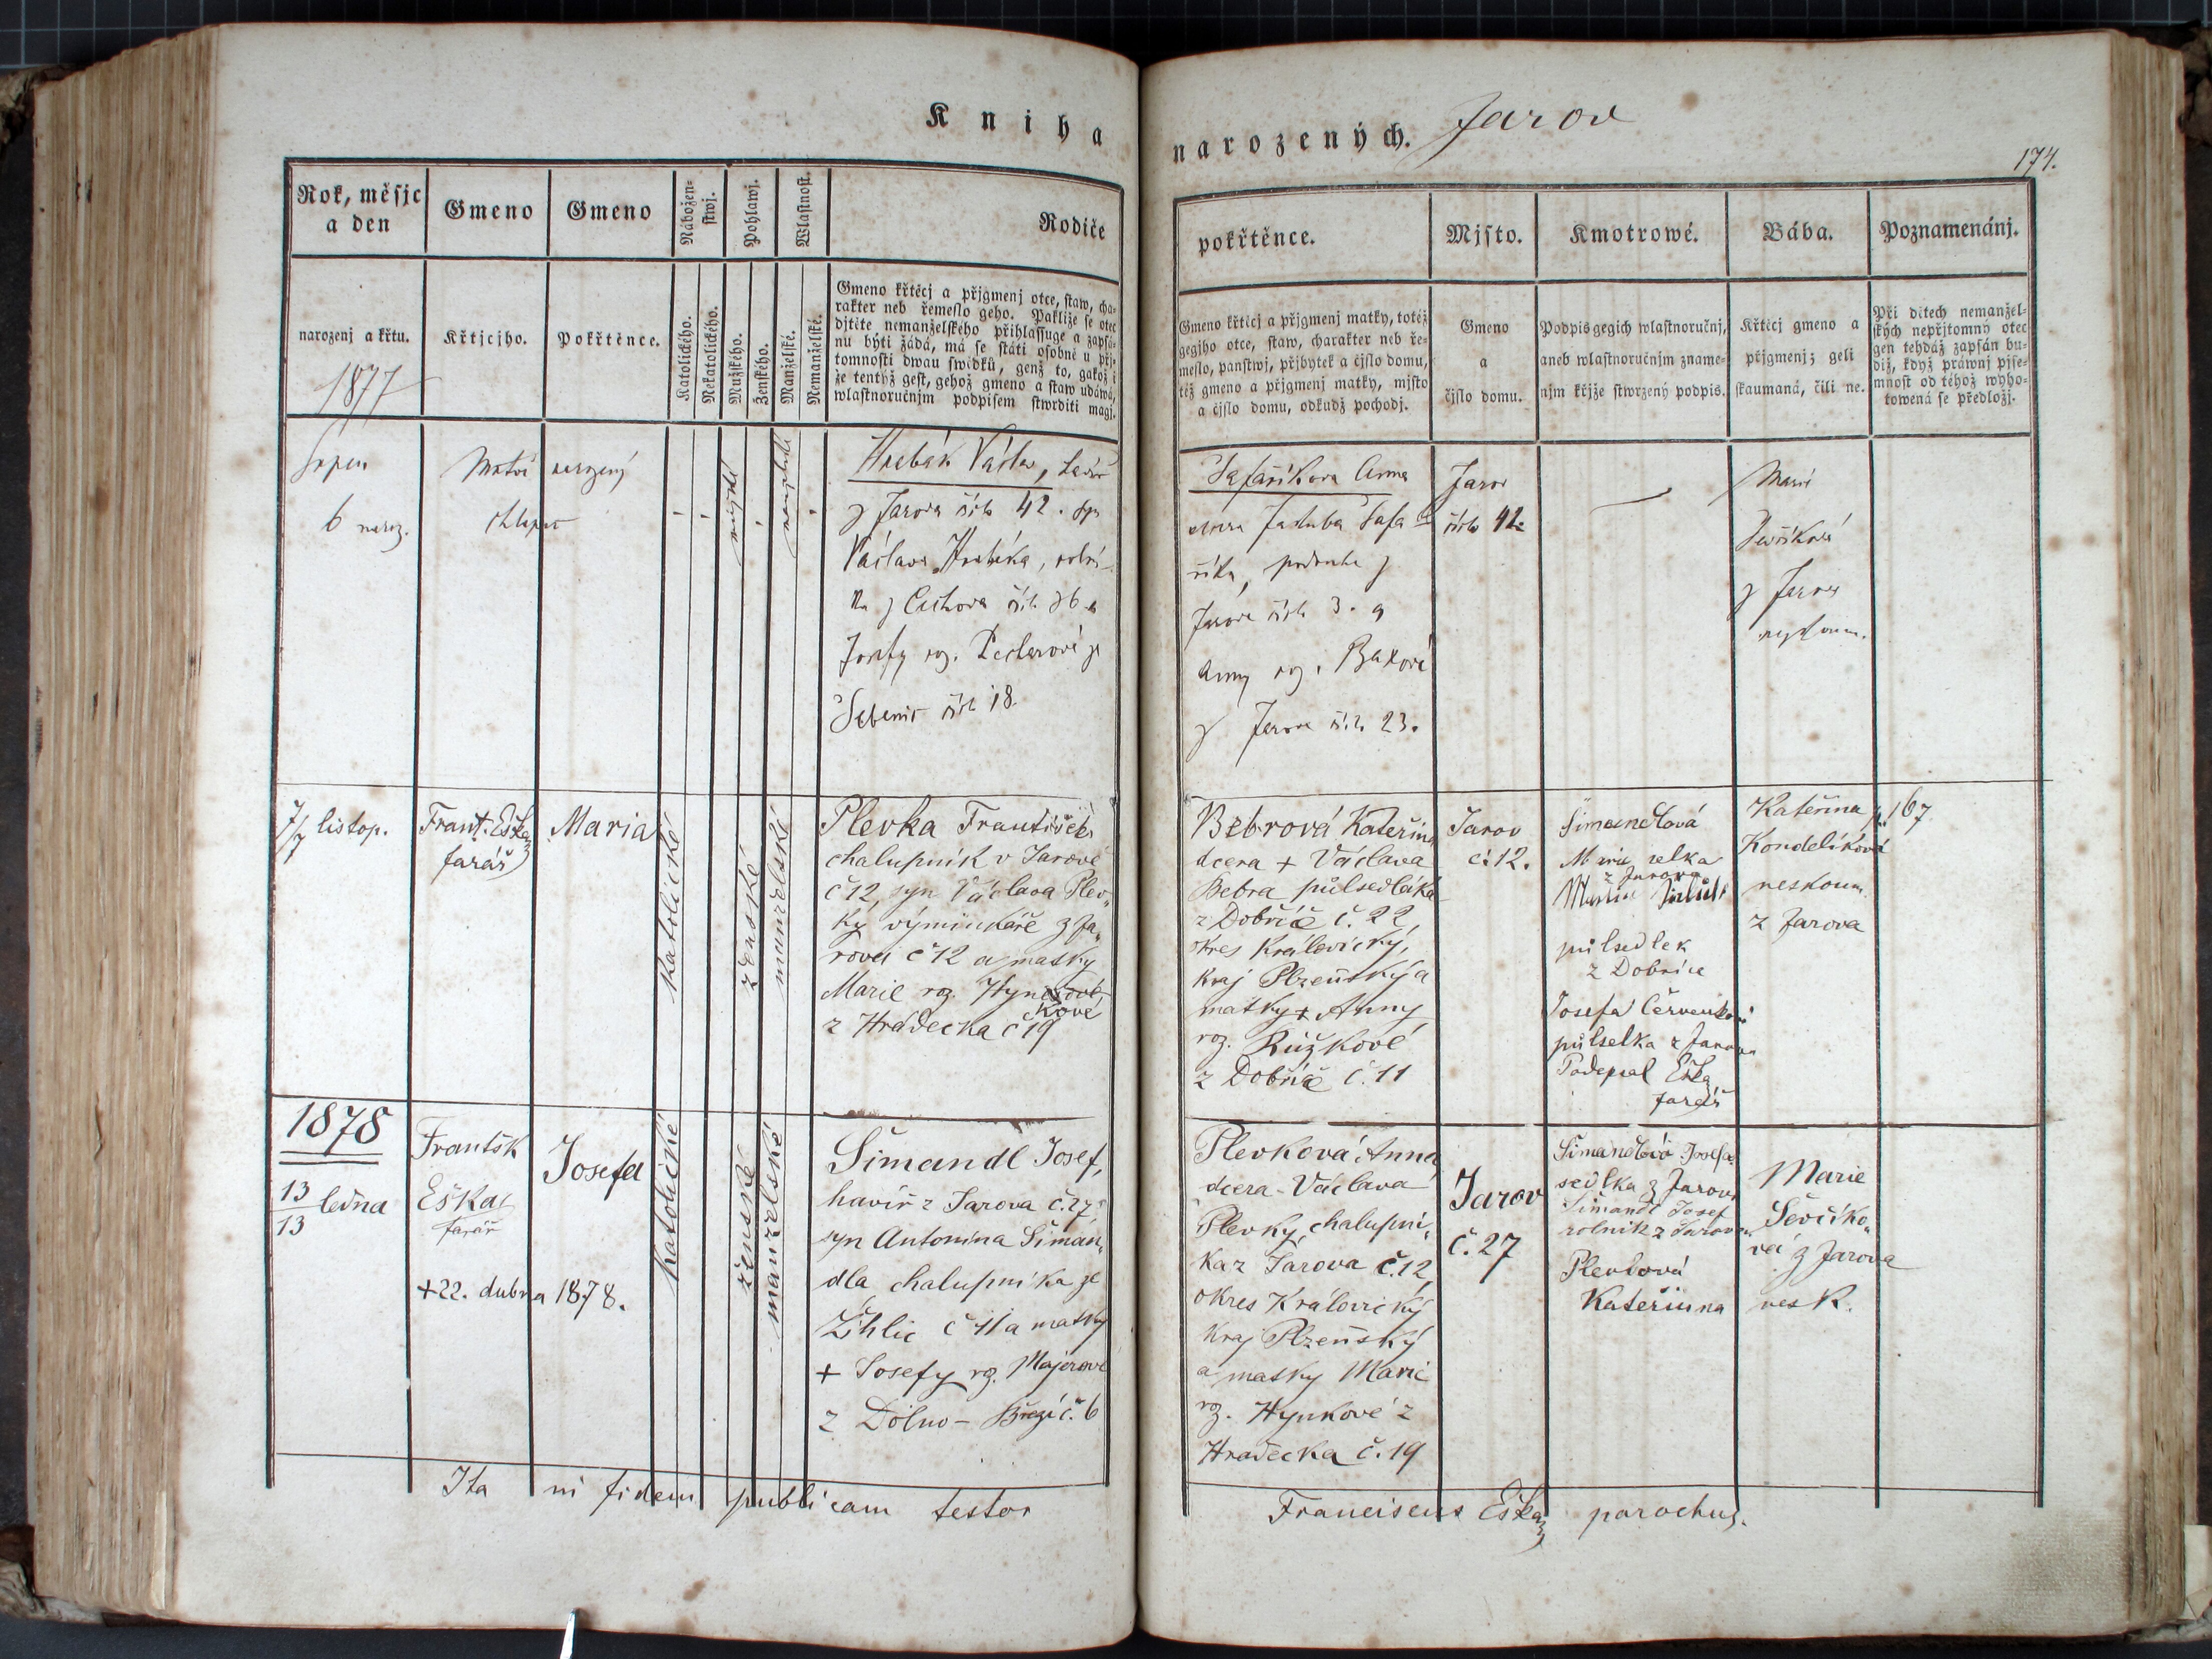 Kniha
narozených. Jarov
174.
Rok, měsjc
a den
Gmeno
Gmeno
Nábožen-
stwj.
Pohlawj.
Wlastnost.
Rodiče
pokřtěnce.
Mjsto.
Kmotrowé.
Bába.
Poznamenánj.
narozenj a křtu.
Křtjcjho.
Pokřtěnce.
Katolického.
Nekatolického.
Mužského.
Ženského.
Manželské.
Nemanželské.
Gmeno křtěcj a přjgmenj otce, staw, cha-
rakter neb řemeslo geho. Pakliže se otec
djtěte nemanželského přihlassuge a zapsá-
nu býti žádá, má se státi osobně u přj-
tomnosti dwau swědků, genž to, gakož i
že tentýž gest, gehož gmeno a staw udáwá,
wlastnoručnjm podpisem stwrditi magj.
Gmeno křtěcj a přjgmenj matky, totéž
gegjho otce, staw, charakter neb ře-
meslo, panstwj, přibytek a čjslo domu,
též gmeno a přjgmenj matky, mjsto
a čjslo domu, odkudž pocházj.
Gmeno
a
čjslo domu.
Podpis gegich wlastnoručnj,
aneb wlastnoručnjm zname-
njm křjže stwrzený podpis.
Křtěcj gmeno a
přjgmenj; geli
skaumaná, čili ne.
Při djtech nemanžel-
ských nepřjtomný otec
gen tehdáž zapsán bu-
diž, když práwnj pjse-
mnost od téhož wyho-
towená se předložj.
1877
Srpen
6 naroz.
Mrtvě narozený
chlapec
mužské
manželské
Hrabák Václav,
z Jarova čís. 42. syn
Václava Hrabáka, rolní-
ka z
Josefy roz.
čís. 18.
Šafaříkova Anna
dcera Jakuba Šafa
říka, podruha z
Jarova čísla 3. a
Anny roz.
z Jarova čís. 23.
Jarov
číslo 42.
Marie
Ševčíková
z Jarova
7/7 listop.
Frant. Eška
farář
Maria
katolické
ženské
manželské
Plevka František
chalupník v Jarově
č 12, syn Václava Plev„
ky výminkáře z Ja„
rova č 12 a matky
Marie roz. Hynkové
z Hradecka č 19
Bebrová Kateřina
dcera + Václava
Bebra půlsedláka
z Dobříč č. 22,
okres Kralovický,
kraj Plzeňský a
matky + Anny
roz. Růžkové
z Dobříč č. 11
Jarov
č. 12.
Šimandlová
Marie selka
z Jarova
Martin
půlsedlek
z Dobříče
Josefa Červenková
půlselka z Jarova
Podepsal Eška
farář
Kateřina
Kondelíková
neskoum.
z Jarova
p. 167
1878
13/13 ledna
Františk
Eška
farář
Josefa
+ 22. dubna 1878.
katolické
ženské
manželské
Šimandl Josef,
havíř z Jarova č. 27
syn Antonína Šiman„
dla chalupníka ze
Žihlic č 11 a matky
+ Josefy roz. Majerové
z Dolno – Březí č. 6
Plevková Anna
dcera Václava
Plevky, chalupní„
ka z Jarova č. 12,
okres Kralovický
kraj Plzeňský
a matky Marie
roz. Hynkové z
Hradecka č. 19
Jarov
č. 27
Šimandlová Josefa
sedlka z Jarova
Šimandl Josef
rolník z Jarova
Plevková
Kateřinna
Marie
Ševčíko„
vá z Jarova
nesk.
Ita in fidem publicam testor
Franciscus Eška parochus.